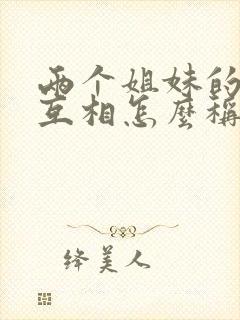 两个姐妹的
互相怎麼稱
绛美人